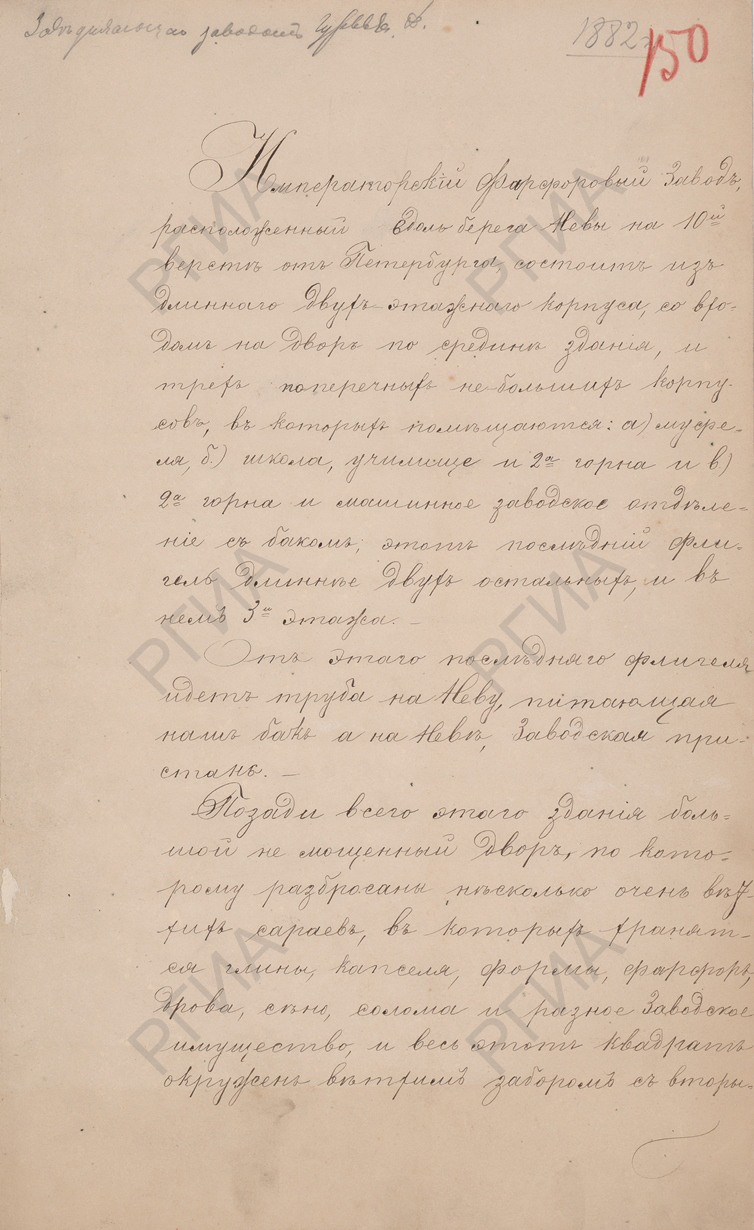 заводомъ Гурьевъ. Д.
1882 г.
150
Императорскій Фарфоровый Заводъ,
расположенный вдоль берега Невы на 10й
верстѣ отъ Петербурга, состоитъ изъ
длиннаго двухъ-этажнаго корпуса, со вхо-
домъ на дворъ по срединѣ зданія, и
трехъ поперечныхъ не-большихъ корпу-
совъ, въ которыхъ помѣщаются: а) муфе-
ля, б.) школа, училище и 2а горна и в)
2а горна и машинное заводское отдѣле-
ніе съ бакомъ; этотъ послѣдній фли-
гель длиннѣе двухъ остальныхъ, и въ
немъ 3и этажа. —
Отъ этаго послѣдняго флигеля
идетъ труба на Неву, питающая
нашъ бакъ а на Невѣ, Заводская при-
стань. —
Позади всего этаго зданія боль-
шой не мощенный дворъ, по кото-
рому разбросаны нѣсколько очень вѣт-
хихъ сараевъ, въ которыхъ хранят-
ся глины, капселя, формы, фарфоръ,
дрова, сѣно, солома и разное Заводское
имущество, и весь этотъ квадратъ
окруженъ вѣтхимъ заборомъ съ вторы-
РГИА
РГИА
РГИА
РГИА
РГИА
РГИА